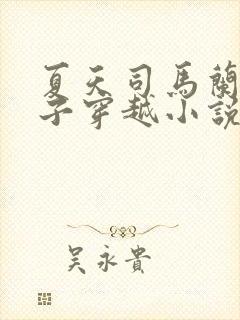 夏天司馬蘭
子穿越小說
吳永貴